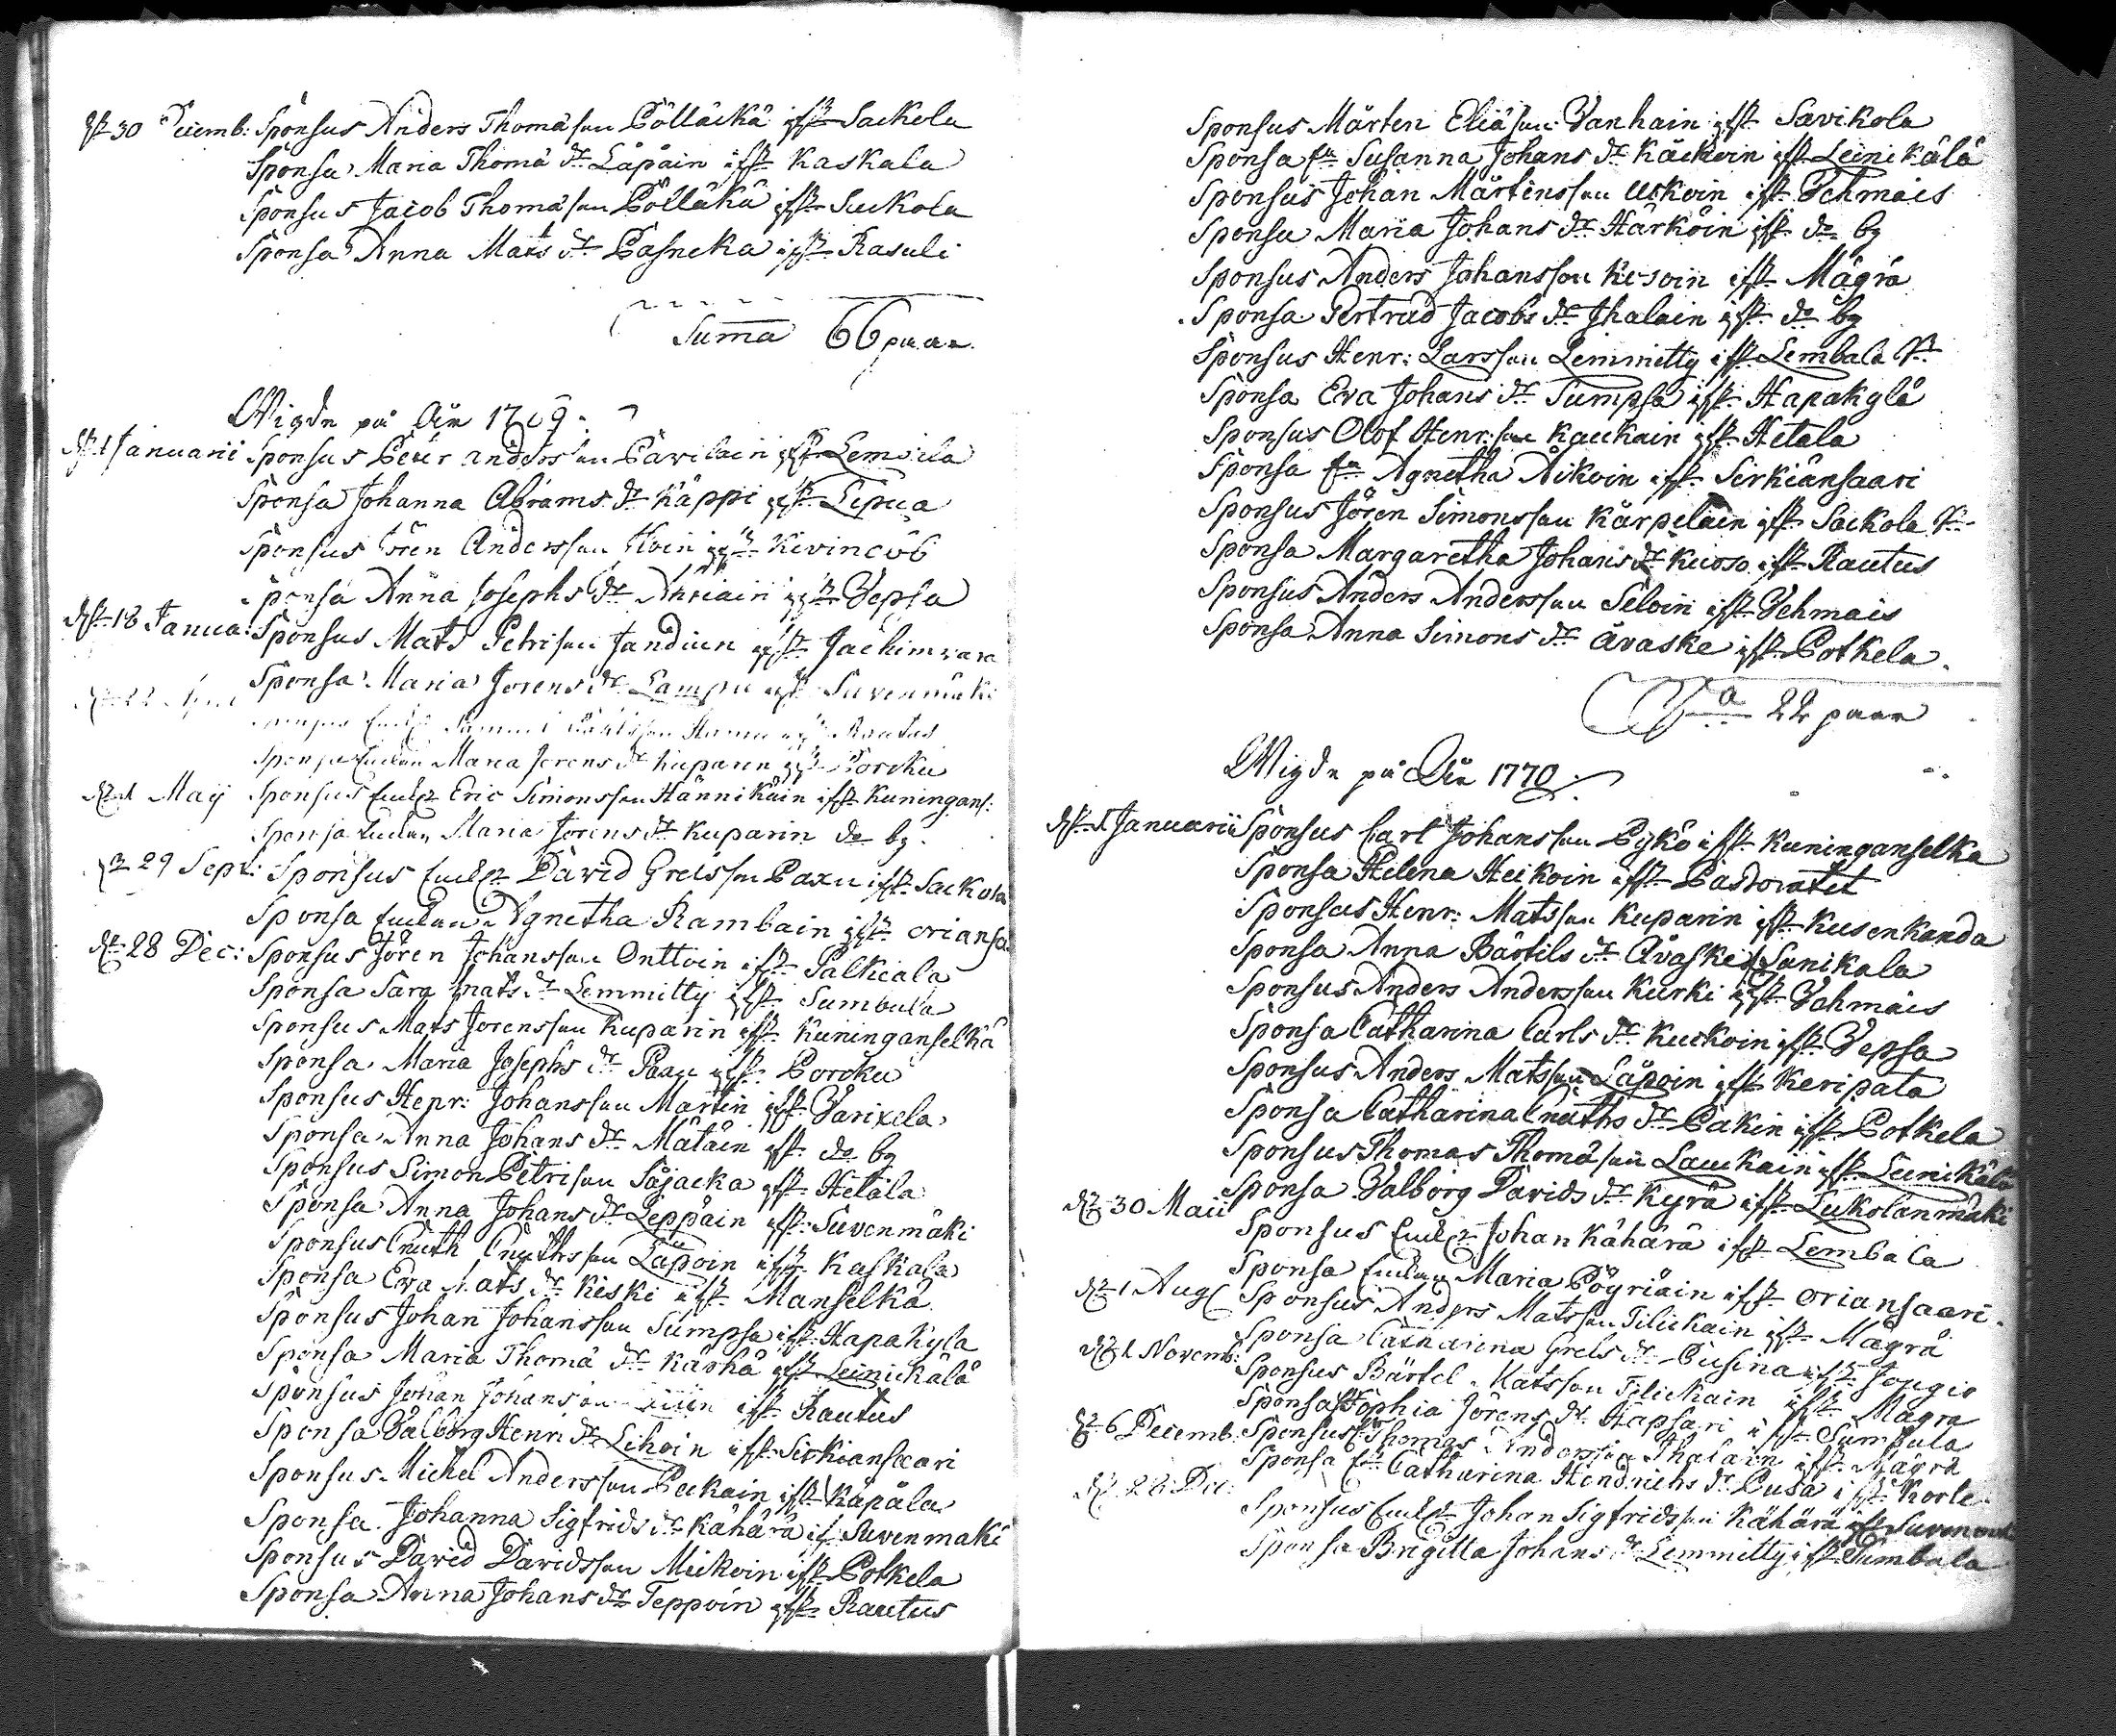 d. 30 Decemb: Sponsus Anders Thomässon Pölläckä ifr. Sackola
Sponsa Maria Thomä dr. Läpäin ifr. Kaskala
Sponsus Jacob Thomässon Pölläkä ifr. Suckola
Sponsa Anna Mats dr. Pasneka ifr. Rasuli
Suma 66 paar.
Wigde på Åhr 1769.
d. 1 Januarii Sponsus Petter Andersson Pävilain ifr. Lemoila
Sponsa Johanna Abrams dr. Käppi ifr. Lipua
Sponsus Jören Andersson ifr. Kivincöb
Sponsa Anna Josephs dr. Ahriain ifr. Vepsa
d. 18 Janua: Sponsus Mats Petrisson Jandiun ifr. Jächimvara
Sponsa Maria Jorens dr. Lampu ifr. Suvenmäki
d. 22
Rautus
Sponsa Enckan Maria Jorens dr. Kuparin ifr. Porcku
d. 1 Maij Sponsus Enckl. Eric Simonsson Hännikäin ifr. Kuningans:
Sponsa Enckan Maria Jorens dr. Kuparin do by.
d. 29 Sept: Sponsus Enckl. David Grelsson Paxu ifr. Sackola
Sponsa Enckan Agnetha Rambain ifr. oriansa
d. 28 Dec: Sponsus Jören Johansson Onttoin ifr. Palkeala
Sponsa Sara Mats dr. Lemmitty ifr. Sumbula
Sponsus Mats Jorensson Kuparin ifr. Kuninganselkä
Sponsa Maria Josephs dr. Paxu ifr. Porcku
Sponsus Henr: Johansson Martin ifr. Varixela
Sponsa Anna Johans dr. Mätäin ifr. do by
Sponsus Simon Petrisson Säjacka ifr. Hetala
Sponsa Anna Johans dr. Leppäin ifr. Suvenmäki
Sponsus Cnuth Cnuthsson Läpoin ifr. Kaskala
Sponsa Eva Mats dr. Kiski ifr. Manselkä
Sponsus Johan Johansson Sumpsa ifr. Hapakyla
Sponsa Maria Thomä dr. Kärhä ifr. Leinickälä
Sponsus Johan Johansson ifr. Rautus
Sponsa Valborg Henri dr. Lihoin ifr. Sirkiansaari
Sponsus Michel Andersson Peckain ifr. Käpäla
Sponsa Johanna Sigfrids dr. Kähärä if. Suvenmaki
Sponsus David Davidsson Mickoin ifr. Potkela
Sponsa Anna Johans dr. Teppoin ifr. Rautus
Sponsus Mårten Eliäson Vanhain ifr. Savikola
Sponsa fr. Susanna Johans dr. Käckoin ifr. Leinikälä
Sponsus Johan Mårtensson Uckoin ifr. Vehmais
Sponsa Maria Johans dr. Härköin ifr. do by
Sponsus Anders Johansson Kesoin ifr. Mägrä
Sponsa Pertrud Jacobs dr. Jhalain ifr. do by
Sponsus Henr: Larsson Lemmitty ifr. Lembala
Sponsa Eva Johans dr. Sumpsa ifr. Hapakylä
Sponsus Olof Henr:son Kauckain ifr. Hetala
Sponsa fr. Agnetha Äikoin ifr. Sirkiänsaari
Sponsus Jören Simonsson Kärpelain ifr. Sackola
Sponsa Margaretha Johans dr. Kuoso ifr. Rautus
Sponsus Anders Andersson Seloin ifr. Vehmais
Sponsa Anna Simons dr. Ävaske ifr. Potkela.
Sa 22 paar
Wigde på Åhr 1770.
d. 1 Januarii Sponsus Carl Johansson Pykö ifr. Kuninganselka
Sponsa Helena Heikoin ifr. Pastoratet
Sponsus Henr: Matsson Kuparin ifr. Kusenkanda
Sponsa Anna Bärtils dr. Åvaske ifr. Sunikala
Sponsus Anders Andersson Kurki ifr. Vehmais
Sponsa Catharina Carls dr. Kuckoin ifr. Vepsa
Sponsus Anders Matsson Läpoin ifr. Keripata
Sponsa Catharina Cnuths dr. Päkin ifr. Potkela
Sponsus Thomas Thomäson Lauckain ifr. Leinikälä
Sponsa Valborg Davids dr. Kyrä ifr. Luckolanmäki
d. 30 Maii Sponsus Enckl. Johan Kähärä ifr. Lembala
Sponsa Enckan Maria Pögriäin ifr. oriansaari.
d. 1 Aug Sponsus Anders Matsson Tilickain ifr. Mägrä
Sponsa Catharina Grels dr. Pusina ifr. Jougio
d. 1 Novemb: Sponsus Bärtel Matsson Tilickain ifr. Mägra
Sponsa Sophia Jörens dr. Hapsari ifr. Sumbula
d. 6 Decemb: Sponsus Thomas Andersson Jhalain ifr. Mägrä
Sponsa fr. Catharina Hendrichs dr. Pusa ifr. Korle
d. 28 Dec: Sponsus Enckl. Johan Sigfridsson Kähärä ifr. Suvenmäki
Sponsa Brigitta Johans dr. Lemmitty ifr. Sumbula